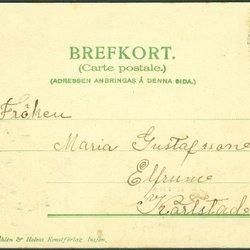 BREFKORT.
(Carte postale.)
(ADRESSEN ANBRINGAS Å DENNA SIDA.)
Fröken
Maria Gustafsson
Elfrune
Karlstad
Åhlén & Holms Konstförlag Insjön.